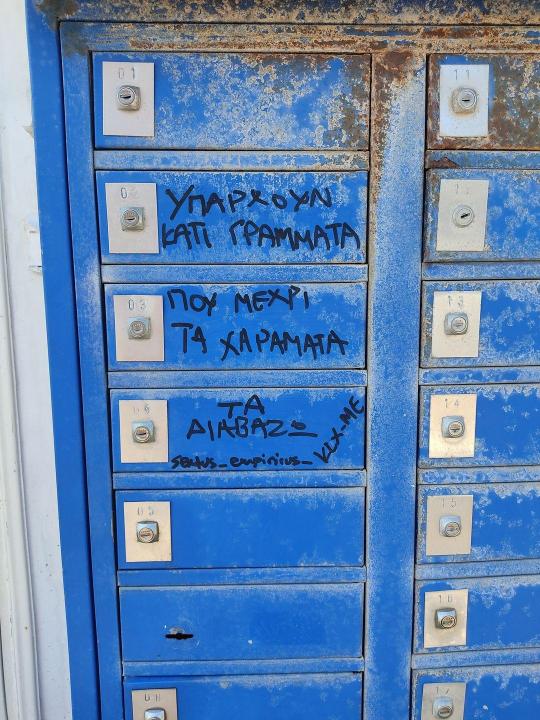 01
11
02
ΥΠΑΡΧΟΥΝ
ΚΑΤΙ ΓΡΑΜΜΑΤΑ
03
ΠΟΥ ΜΕΧΡΙ
ΤΑ ΧΑΡΑΜΑΤΑ
13
04
ΤΑ
ΔΙΑΒΑΖΩ
sextus_empirirus_
KLX-ME
14
05
15
16
08
17